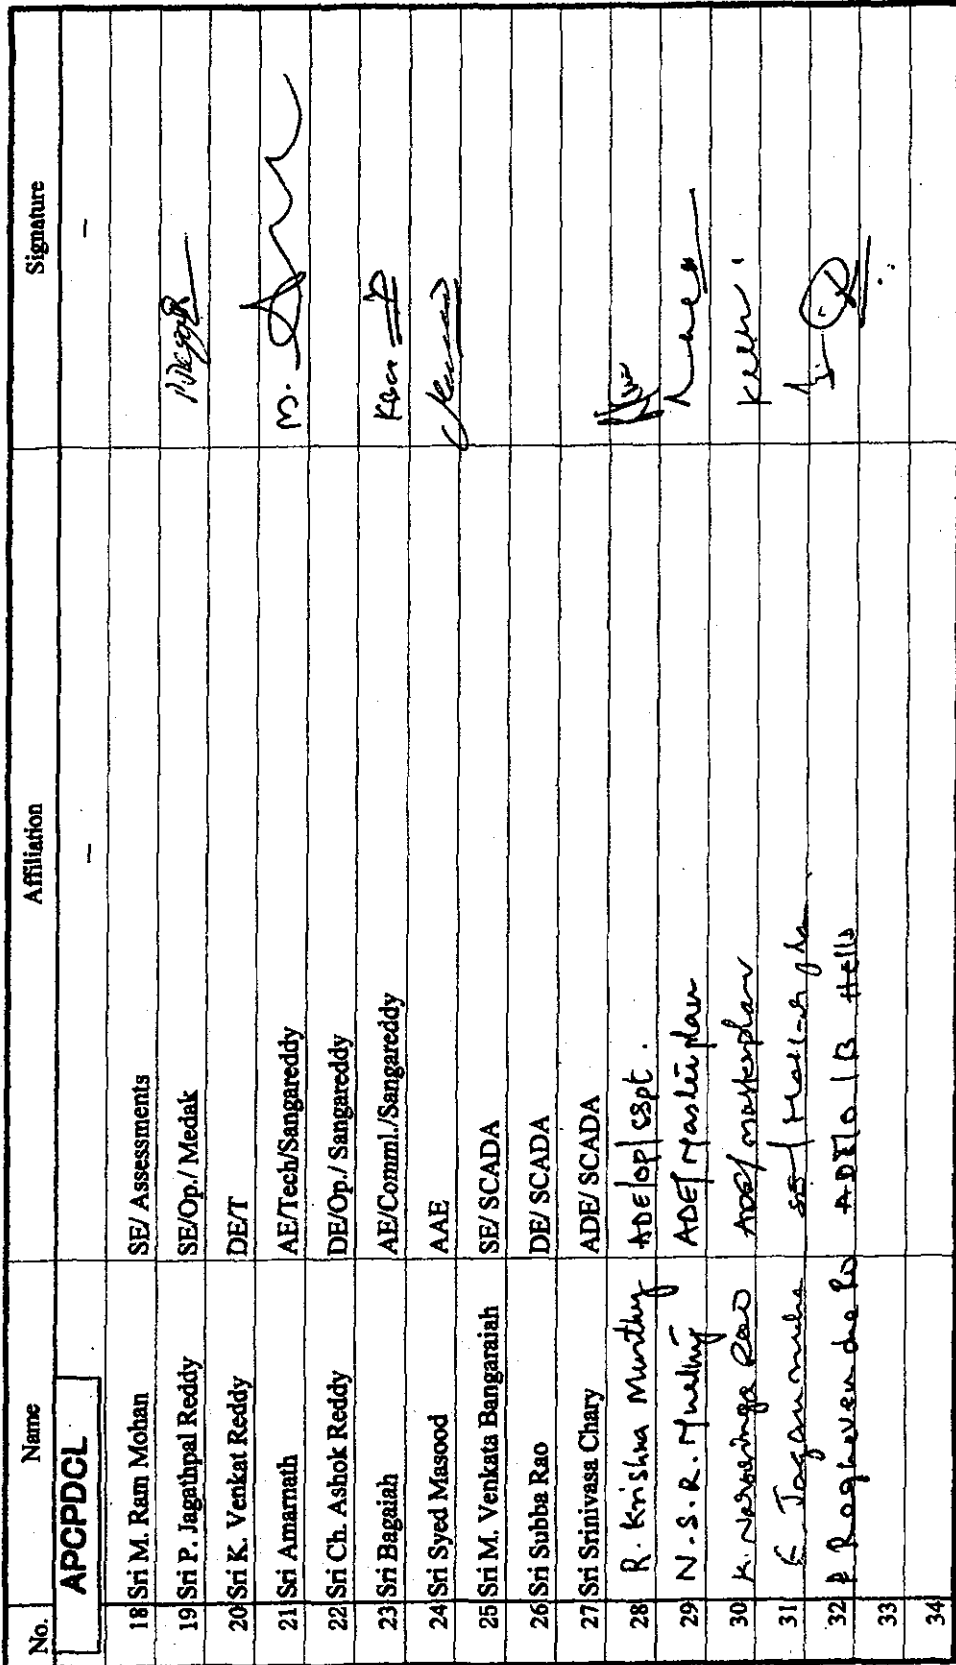 No. Name Affiliation Signature
APCPDCL - -
18 Sri M. Ram Mohan SE/ Assessments
19 Sri P. Jagathpal Reddy SE/Op./ Medak
20 Sri K. Venkat Reddy DE/T
21 Sri Amarnath AE/Tech/Sangareddy
22 Sri Ch. Ashok Reddy DE/Op./ Sangareddy
23 Sri Bagaiah AE/Comml./Sangareddy
24 Sri Syed Masood AAE
25 Sri M. Venkata Bangaraiah SE/ SCADA
26 Sri Subba Rao DE/ SCADA
27 Sri Srinivasa Chary ADE/ SCADA
28 R. Krishna Murthy ADE/op/cspt.
29 N.S.R. Murthy ADE/Masterplan
30 K. Narasinga Rao ADE/masterplan
31
32 Raghavendra
33
34